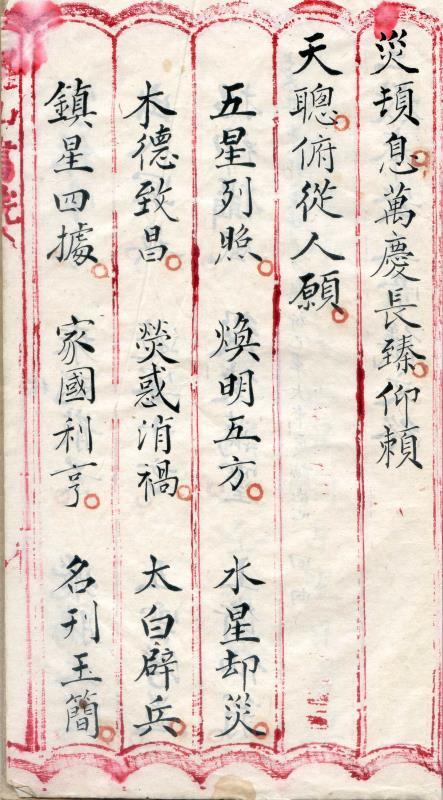 災頓息。萬慶長臻。仰賴
天聰。俯從人願。
五星列照。煥明五方。水星却災。
木德致昌。熒惑消禍。太白辟兵。
鎮星四據。家國利亨。名刊王簡。